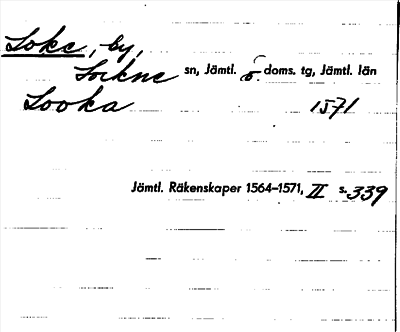 Loke, by,
Lockne sn, Jämtl. ö. doms. tg, Jämtl. län
Looka 1571
Jämtl. Räkenskaper 1564–1571, II s. 339